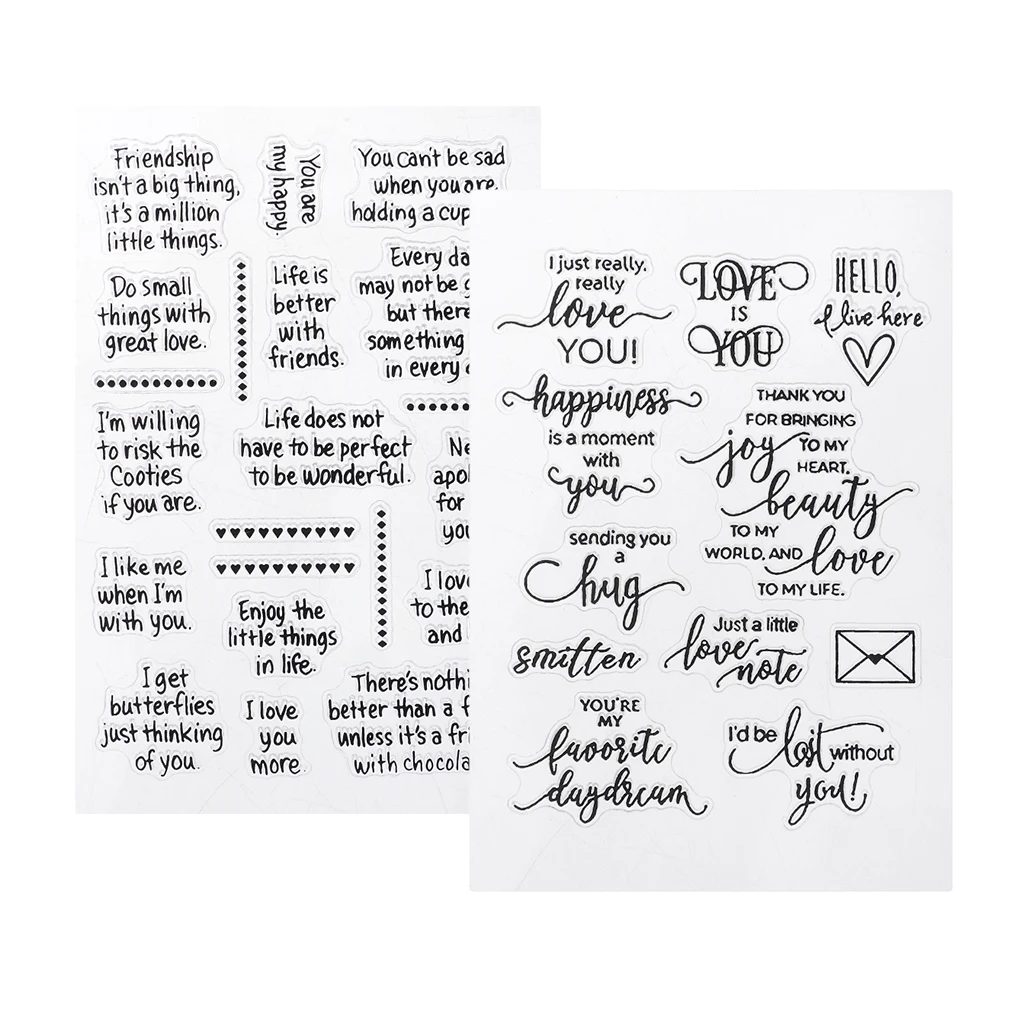 Friendship
isn't a big thing,
it's a million
little things.
You are
my happy.
You can't be sad
when you are
holding a cup
Do small
things with
great love.
Life is
better
with
friends.
Every
may not be
but there
something
in every
I'm willing
to risk the
Cooties
if you are.
Life does not
have to be perfect
to be wonderful.
for
I like me
when I'm
with you.
Enjoy the
little things
in life.
I
to the
and
I get
butterflies
just thinking
of you.
I love
you
more.
There's
better than a
unless it's a
with
I just really,
really
love
YOU!
LOVE
IS
YOU
HELLO,
I live here
happiness
is a moment
with
you
THANK YOU
FOR BRINGING
joy TO MY
HEART,
beauty
TO MY
WORLD, AND love
TO MY LIFE.
sending you
a
hug
smitten
Just a little
love
note
YOU'RE
MY
favorite
daydream
I'd be lost without
you!